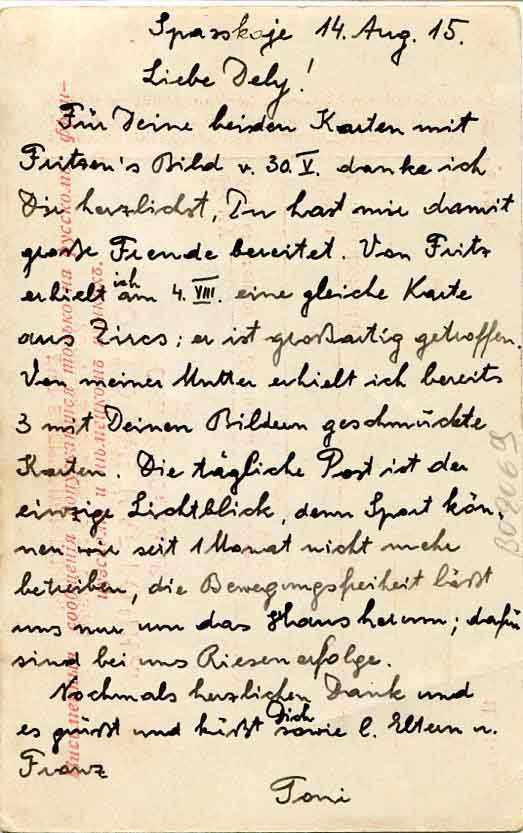 Spasskoje 14. Aug. 15.
Liebe Dely!
Für Deine beiden Karten mit
Fritzen's Bild v. 30. V. danke ich
Dir herzlichst, Du hast mir damit
große Freude bereitet. Von Fritz
erhielt ich am 4. VIII. eine gleiche Karte
aus Zircs; er ist großartig getroffen.
Von meiner Mutter erhielt ich bereits
3 mit Deinen Bildern geschmückte
Karten. Die tägliche Post ist der
einzige Lichtblick, denn Sport kön-
nen wir seit 1 Monat nicht mehr
betreiben, die Bewegungsfreiheit läßt
uns nur um das Haus herum; dafür
sind bei uns Riesenerfolge.
Nochmals herzlichen Dank und
es grüßt und küßt Dich sowie l. Eltern u.
Franz
Toni
Письменныя сообщенія допускаются только на русскомъ, фран-
цузскомъ и нѣмецкомъ языкахъ.